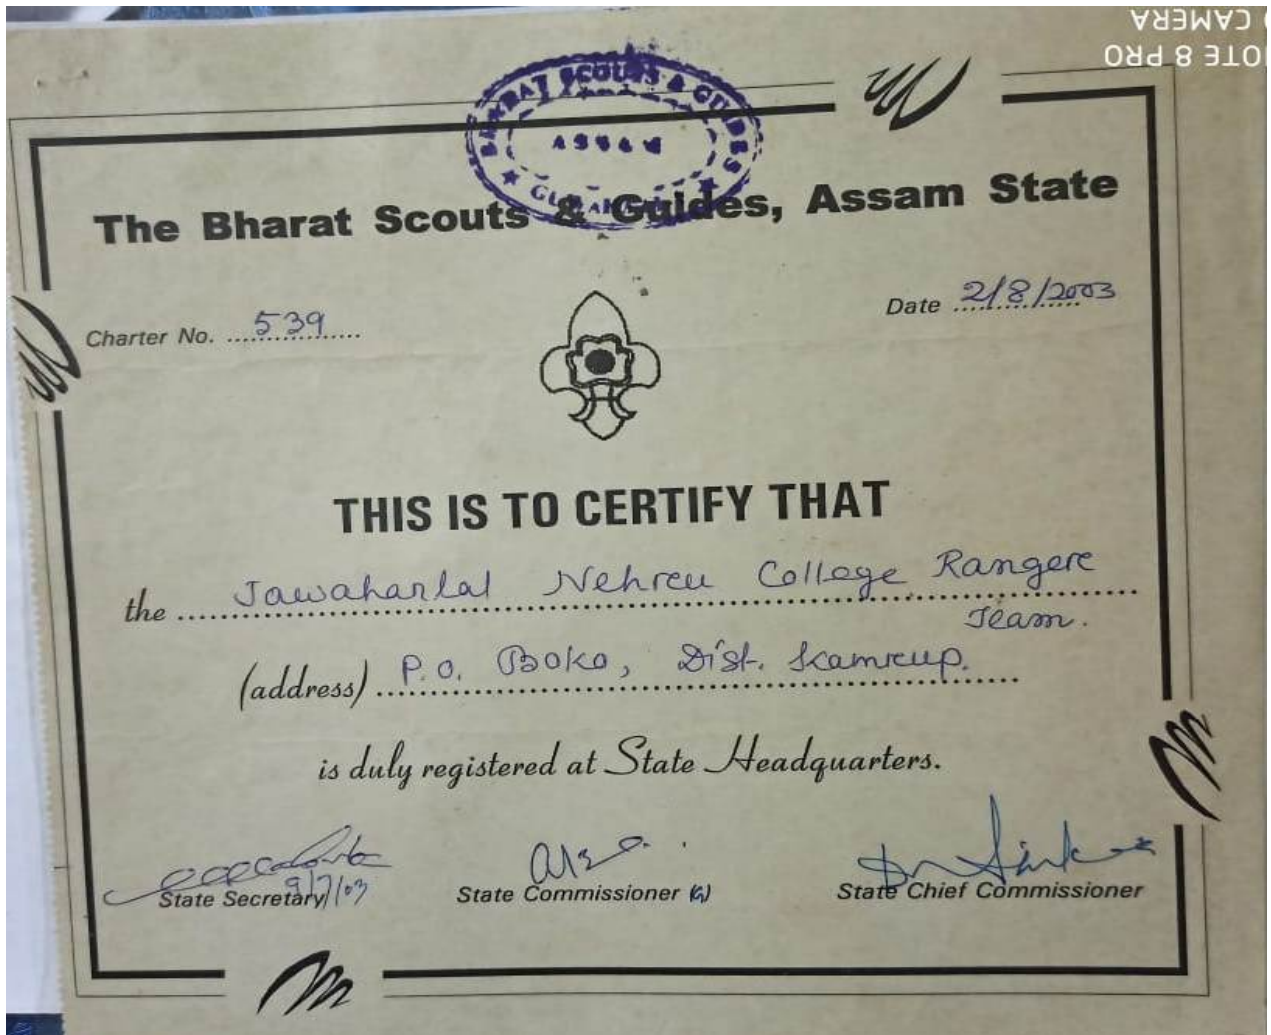 NOTE 8 PRO
CAMERA
BHARAT SCOUTS & GUIDES
ASSAM
The Bharat Scouts & Guides, Assam State
Charter No. ....539....
Date 2/8/2003
THIS IS TO CERTIFY THAT
the Jawaharlal Nehru College Ranger
Team.
(address) P.O. Boko, Dist. Kamrup.
is duly registered at State Headquarters.
9/7/03
State Secretary
State Commissioner (G)
State Chief Commissioner